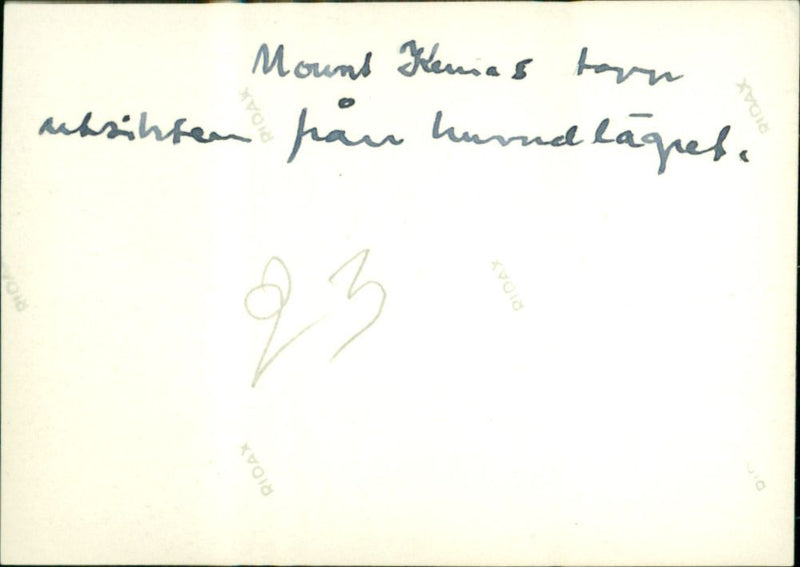 Mount Kenias topp
utsikten från huvudlägret.
RIDAX
RIDAX
RIDAX
RIDAX
23
RIDAX